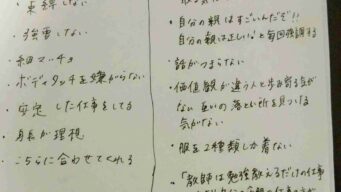 ・束縛しない
・強要しない
・細マッチョ
・ボディタッチを嫌がらない
・安定した仕事をしてる
・身長が理想
・こちらに合わせてくれる
・自分の親はすごいんだぞ!!
自分の親は正しい。と毎回強調する
・話がつまらない
・価値観が違う人と歩み寄る気が
ない 互いの落とし所を見つける
気がない
・服を2種類しか着ない
・「教師は勉強教えるだけの仕事